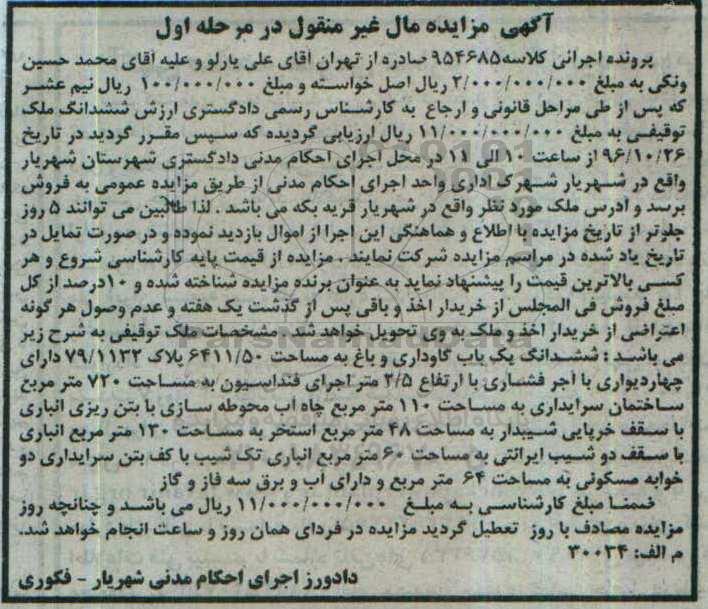 آگهی مزایده مال غیر منقول در مرحله اول
پرونده اجرائی کلاسه۹۵۴۶۸۵ صادره از تهران آقای علی یارلو و علیه آقای محمد حسین
ونکی به مبلغ ۲/۰۰۰/۰۰۰/۰۰۰ ریال اصل خواسته و مبلغ ۱۰۰/۰۰۰/۰۰۰ ریال نیم عشر
که پس از طی مراحل قانونی و ارجاع به کارشناس رسمی دادگستری ارزش ششدانگ ملک
توقیفی به مبلغ ۱۱/۰۰۰/۰۰۰/۰۰۰ ریال ارزیابی گردیده که سپس مقرر گردید در تاریخ
۹۶/۱۰/۲۶ از ساعت ۱۰ الی ۱۱ در محل اجرای احکام مدنی دادگستری شهرستان شهریار
واقع در شهریار شهرک اداری واحد اجرای احکام مدنی از طریق مزایده عمومی به فروش
برسد و آدرس ملک مورد نظر واقع در شهریار قریه بکه می باشد . لذا طالبین می توانند ۵ روز
جلوتر از تاریخ مزایده با اطلاع و هماهنگی این اجرا از اموال بازدید نموده و در صورت تمایل در
تاریخ یاد شده در مراسم مزایده شرکت نمایند ، مزایده از قیمت پایه کارشناسی شروع و هر
کسی بالاترین قیمت را پیشنهاد نماید به عنوان برنده مزایده شناخته شده و ۱۰درصد از کل
مبلغ فروش فی المجلس از خریدار اخذ و باقی پس از گذشت یک هفته و عدم وصول هر گونه
اعتراضی از خریدار اخذ و ملک به وی تحویل خواهد شد . مشخصات ملک توقیفی به شرح زیر
می باشد : ششدانگ یک باب گاوداری و باغ به مساحت ۶۴۱۱/۵۰ پلاک ۷۹/۱۱۳۲ دارای
چهاردیواری با آجر فشاری با ارتفاع ۳/۵ متر اجرای فنداسیون به مساحت ۷۲۰ متر مربع
ساختمان سرایداری به مساحت ۱۱۰ متر مربع چاه آب محوطه سازی با بتن ریزی انباری
با سقف خرپایی شیبدار به مساحت ۴۸ متر مربع استخر به مساحت ۱۳۰ متر مربع انباری
با سقف دو شیب ایرانتی به مساحت ۶۰ متر مربع انباری تک شیب با کف بتن سرایداری دو
خوابه مسکونی به مساحت ۶۴ متر مربع و دارای آب و برق سه فاز و گاز
ضمنا مبلغ کارشناسی به مبلغ ۱۱/۰۰۰/۰۰۰/۰۰۰ ریال می باشد و چنانچه روز
مزایده مصادف با روز تعطیل گردید مزایده در فردای همان روز و ساعت انجام خواهد شد.
م الف: ۳۰۰۳۴
دادورز اجرای احکام مدنی شهریار - فکوری
ParsNamadData